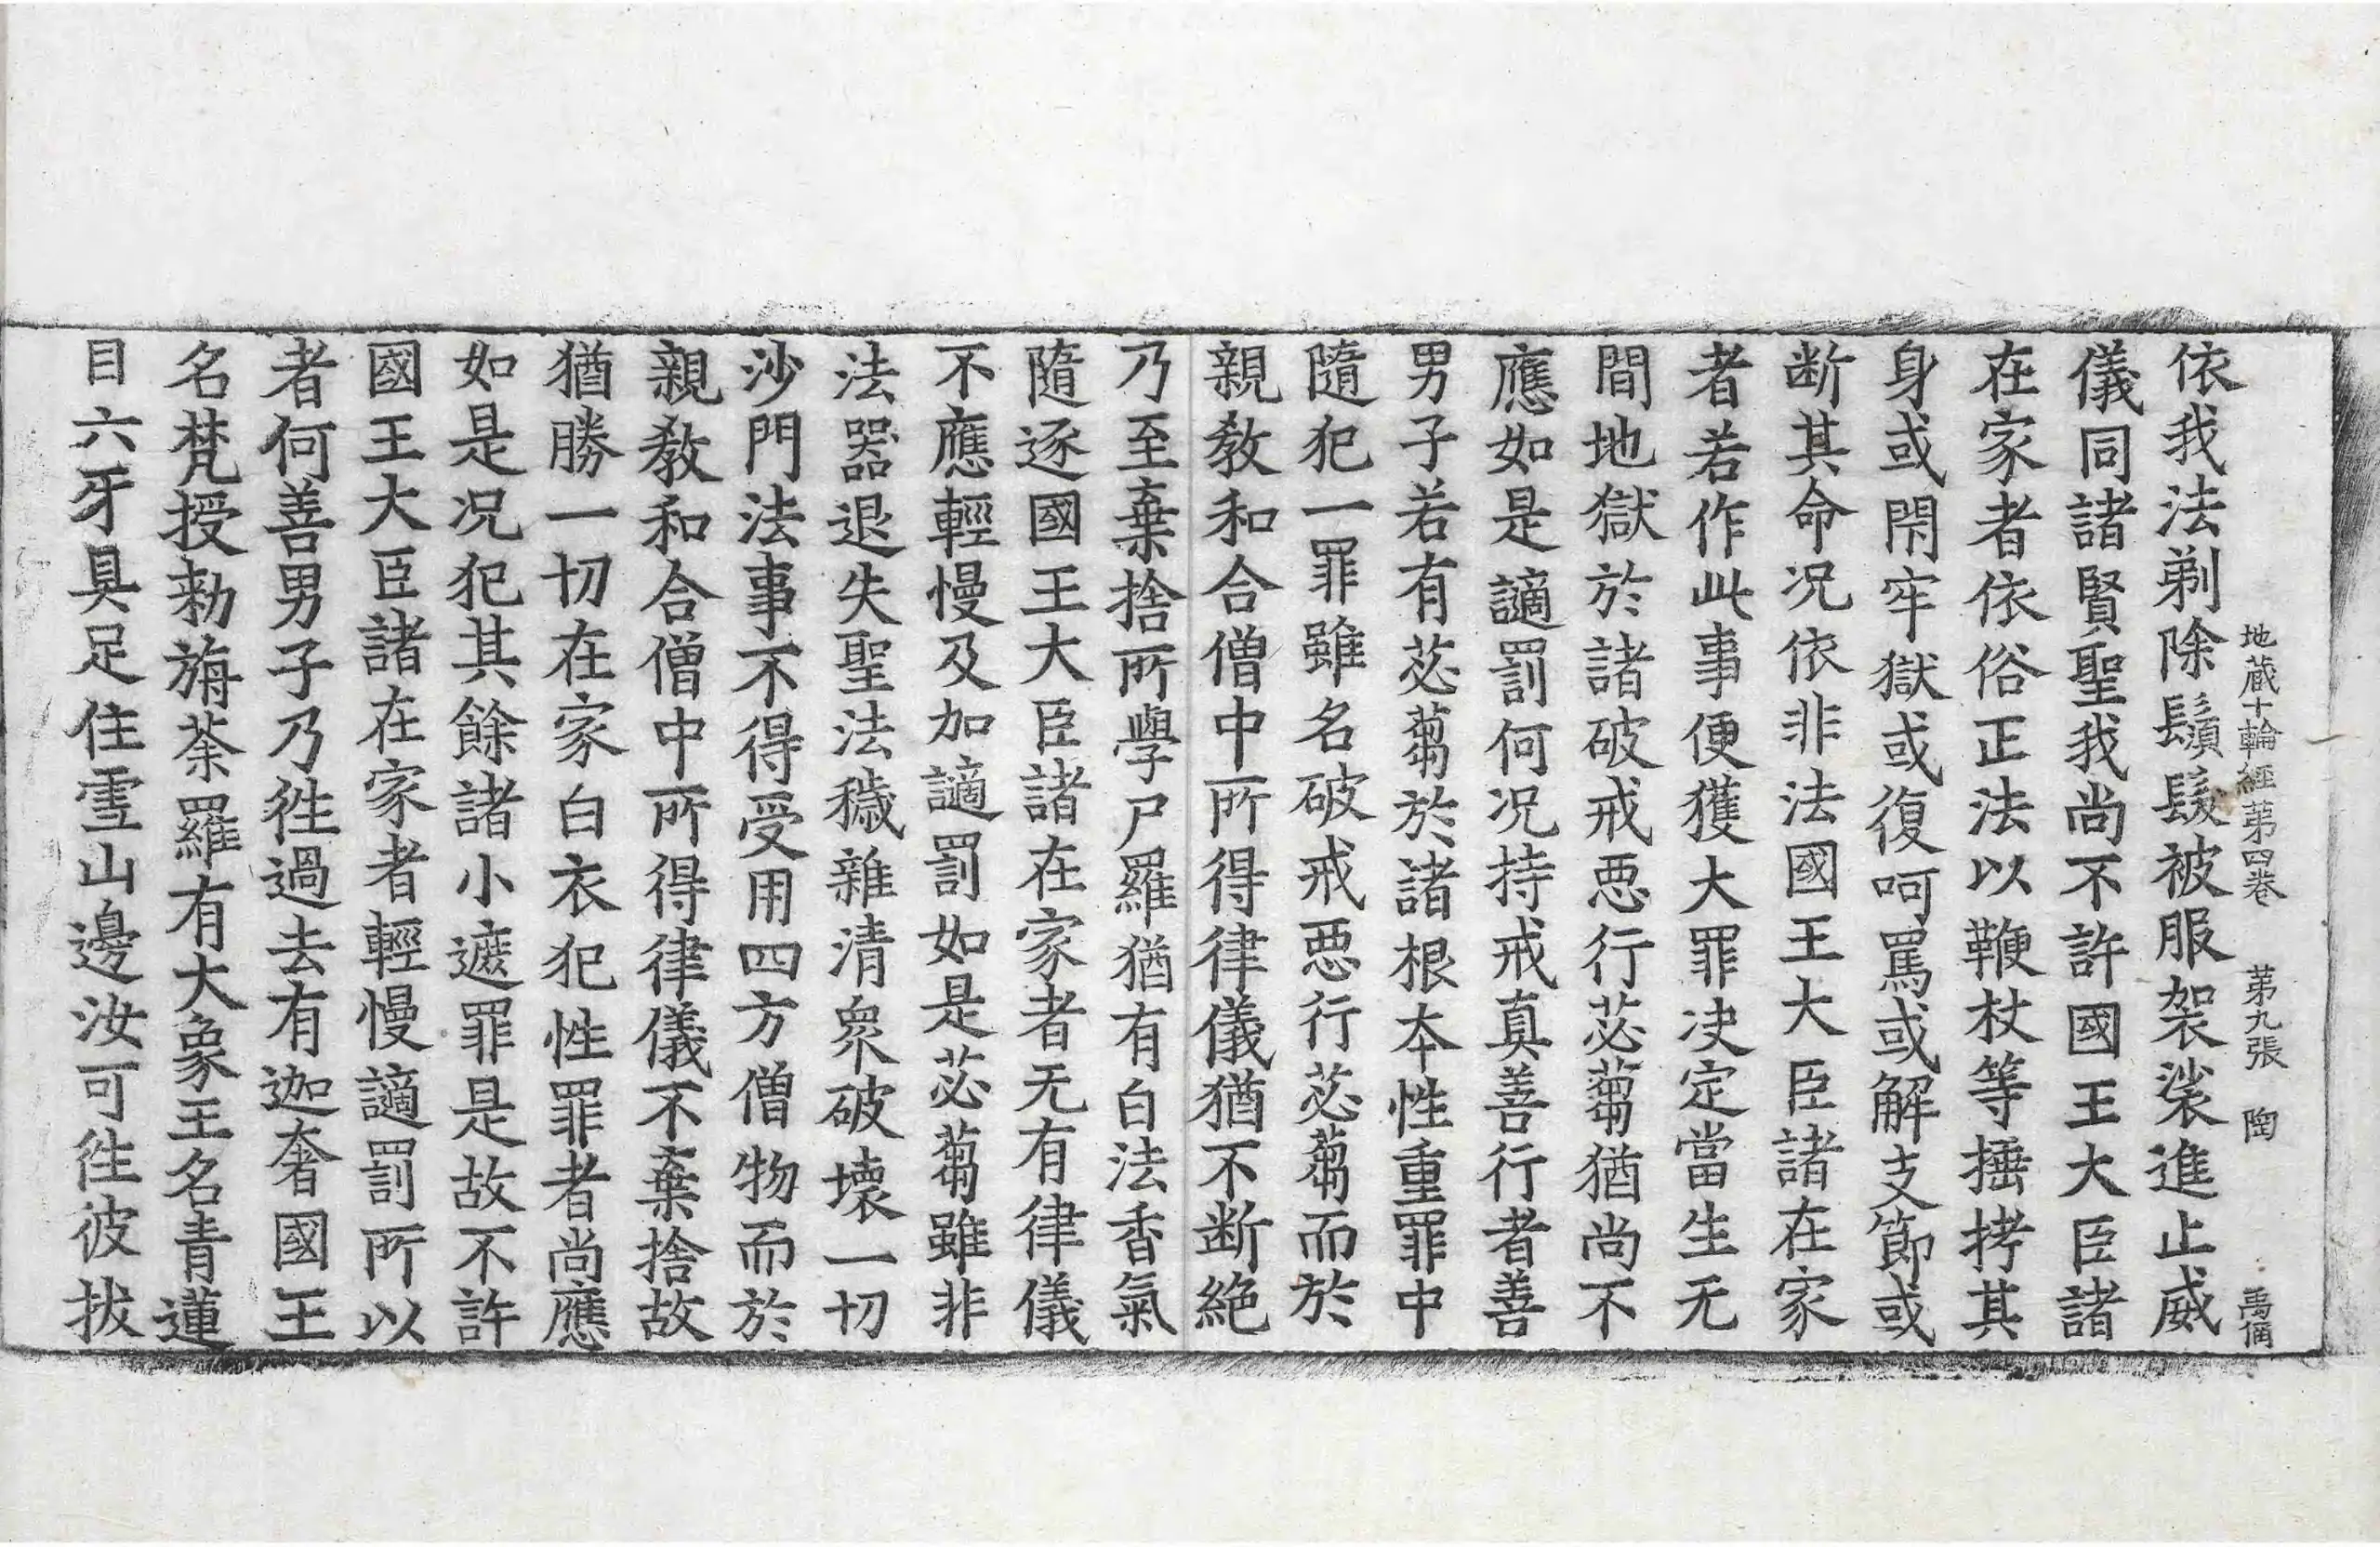 地蔵十輪經苐四卷 苐九張 陶 禹偁
依我法剃除鬚髮被服袈裟進止威
儀同諸賢聖我尚不許國王大臣諸
在家者依俗正法以鞭杖等捶拷其
身或閇牢獄或復呵罵或解支節或
断其命况依非法國王大臣諸在家
者若作此事便獲大罪决定當生无
間地獄於諸破戒惡行苾蒭猶尚不
應如是讁罰何况持戒真善行者善
男子若有苾蒭於諸根本性重罪中
隨犯一罪雖名破戒惡行苾蒭而於
親敎和合僧中所得律儀猶不断絶
乃至棄捨所學尸羅猶有白法香氣
隨逐國王大臣諸在家者无有律儀
不應輕慢及加讁罰如是苾蒭雖非
法器退失聖法穢雜清衆破壞一切
沙門法事不得受用四方僧物而於
親敎和合僧中所得律儀不棄捨故
猶勝一切在家白衣犯性罪者尚應
如是况犯其餘諸小遮罪是故不許
國王大臣諸在家者輕慢讁罰所以
者何善男子乃徃過去有迦奢國王
名梵授勑旃荼羅有大象王名青蓮
目六牙具足住雪山邊汝可徃彼拔